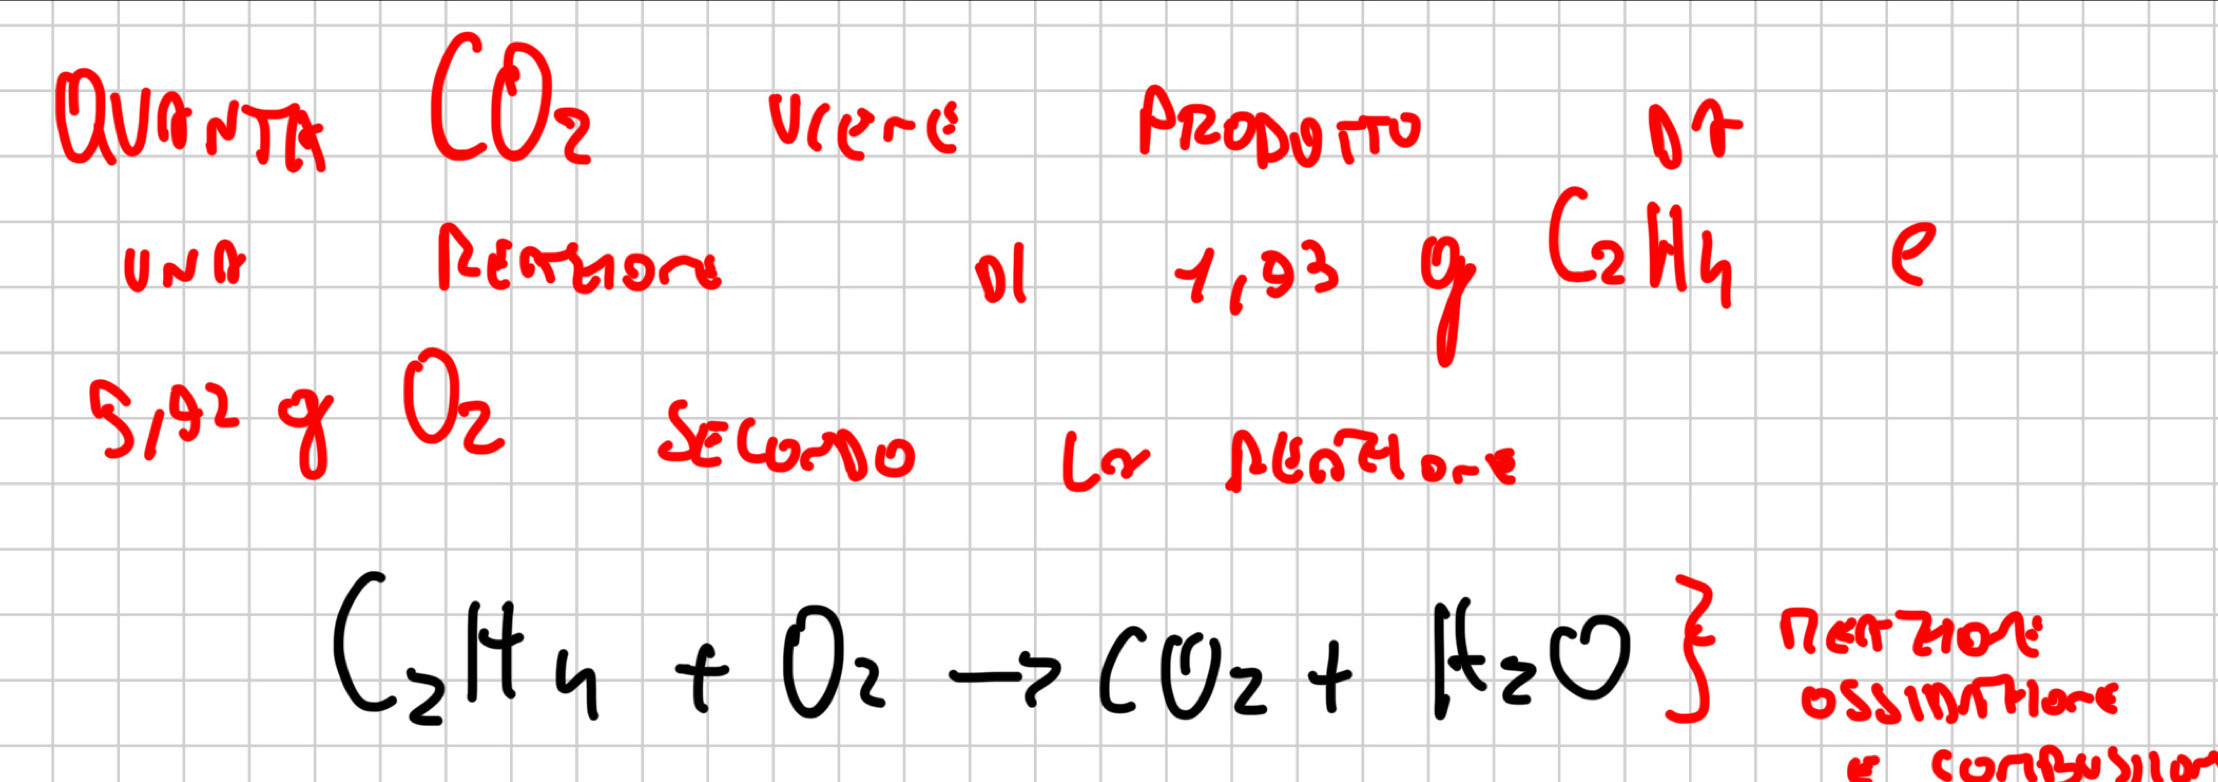 QUANTA CO2 VIENE PRODOTTO DA
UNA REAZIONE DI 1,93 g C2H4 e
5,92 g O2 SECONDO LA REAZIONE
C2H4 + O2 → CO2 + H2O } REAZIONE
OSSIDAZIONE
E COMBUSTION